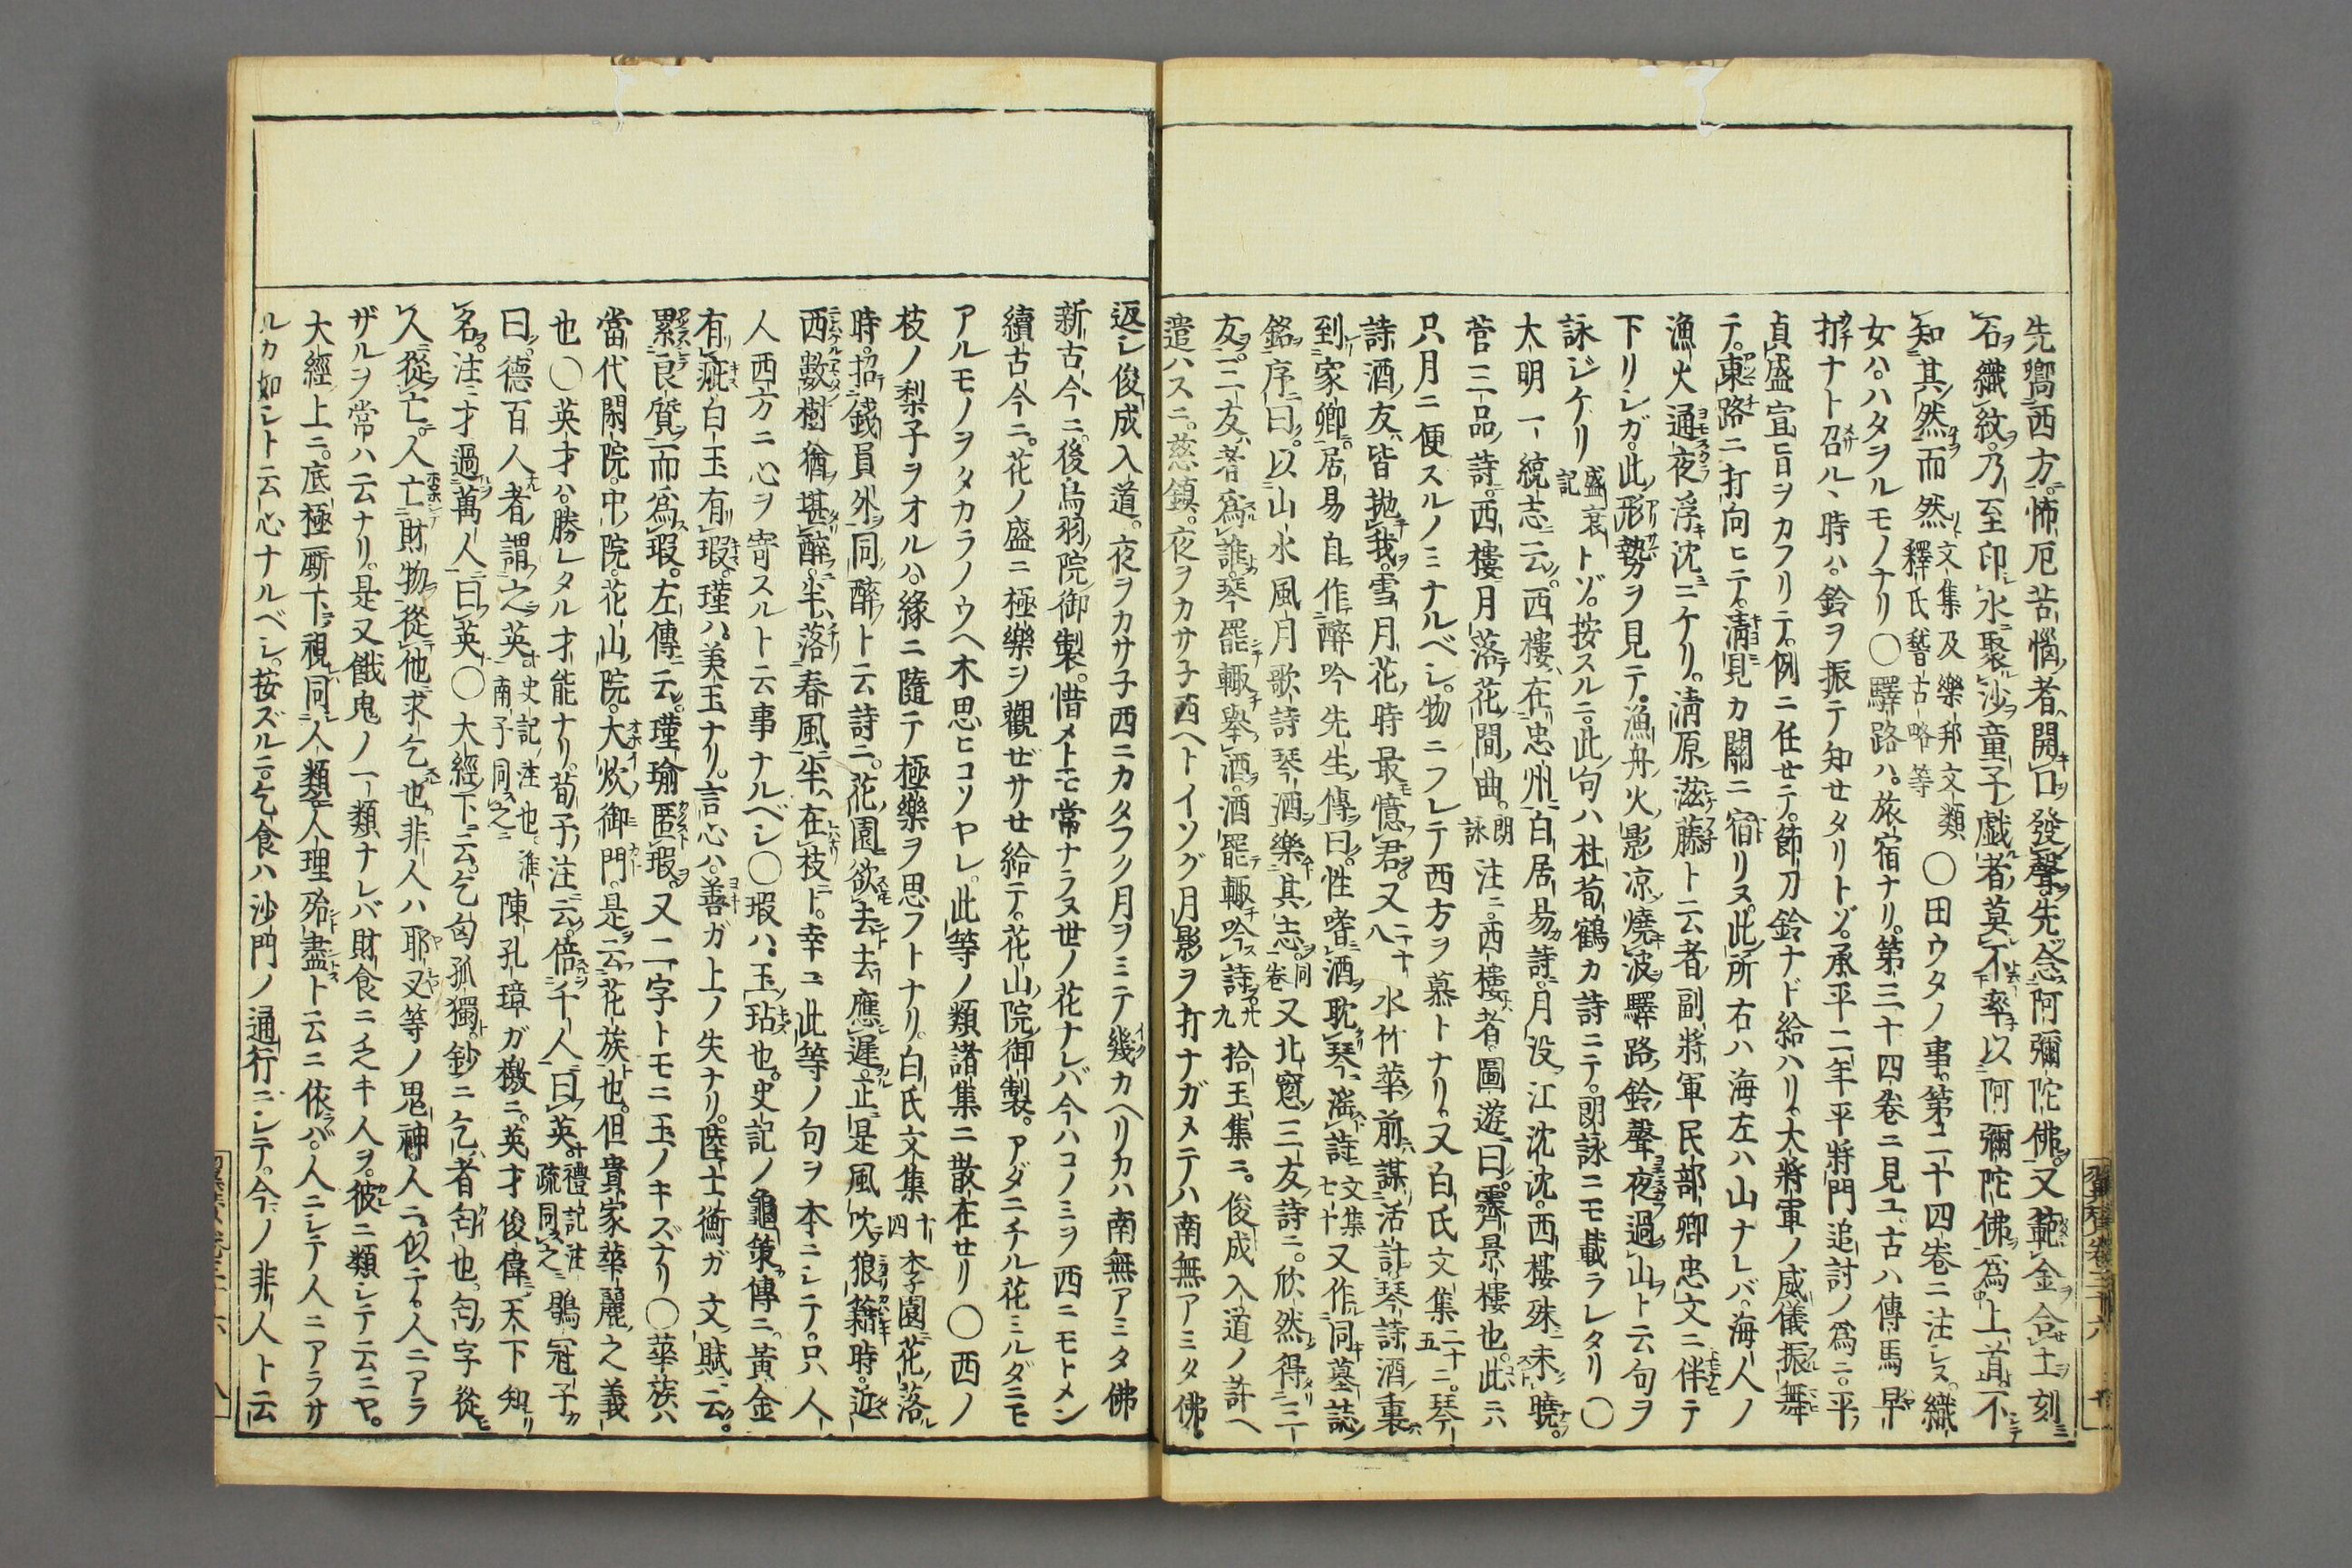 先嚮西方。怖厄苦惱者。開口發聲。先念阿彌陀佛。又範金合土刻
石織紋。乃至印水聚沙童子戯者。莫不率以阿彌陀佛爲上首。不
知其然而然文集及樂邦文類釋氏䅲古略等〇田ウタノ事。第二十四巻ニ注レヌ。織
女ハ。ハタヲルモノナリ〇驛路ハ。旅宿ナリ。第三十四巻ニ見ユ。古ハ傳馬早
打ナト召ル丶時ハ。鈴ヲ振テ知セタリトゾ。承平二年平將門追討ノ爲ニ。平
貞盛宣旨ヲカフリテ。例ニ任セテ。節刀鈴ナド給ハリ。大將軍ノ威儀振舞
テ。東路ニ打向ヒテ。淸見カ關ニ宿リヌ。此所右ハ海左ハ山ナレバ。海人ノ
漁火通夜浮沈ミケリ。淸原滋藤ト云者。副將軍民部卿忠文ニ伴テ
下リシガ。此形勢ヲ見テ。漁舟火影凉燒波驛路鈴聲夜過山ト云句ヲ
詠ジケリ盛衰記トゾ。按スルニ。此句ハ杜荀鶴カ詩ニテ。朗詠ニモ載ラレタリ〇
大明一統志云。西樓在忠州。白居易詩。月没江沈沈。西樓殊未曉。
菅三品詩。西樓月落花間曲。朗詠注ニ。西樓者。圖遊曰。霽景樓也。此ニハ
只月ニ便スルノミナルベシ。物ニフレテ西方ヲ慕トナリ。又白氏文集二十五ニ。琴
詩酒友皆抛我。雪月花時最憶君。又二十八水竹華前謀活計。琴詩酒裏
到家卿。居易自作醉吟先生傳曰。性嗜酒耽琴滛詩文集七十又作同墓誌
銘序曰。以山水風月歌詩琴酒樂其志。同巻又北窓三友詩ニ。欣然得三
友。三友者爲誰。琴罷輙舉酒。酒罷輙吟詩廿九拾玉集ニ。俊成入道ノ許ヘ
遣ハスニ。慈鎭。夜ヲカサ子西ヘトイソグ月影ヲ打ナガメテハ南無アミタ佛。
返シ俊成入道。夜ヲカサ子西ニカタフク月ヲミテ幾カヘリカハ南無アミタ佛
新古今ニ。後鳥羽院御製。惜メトモ常ナラヌ世ノ花ナレバ今ハコノミヲ西ニモトメン
續古今ニ。花ノ盛ニ極樂ヲ觀ゼサセ給テ。花山院御製。アダニチル花ミルダニモ
アルモノヲタカラノウヘ木思ヒコソヤレ。此等ノ類諸集ニ散在セリ〇西ノ
枝ノ梨子ヲオルハ。緣ニ隨テ極樂ヲ思フトナリ。白氏文集十四李園花落
時。招錢員外同醉ト云詩ニ。花園欲去去應遲。正是風吹狼籍時。近
西數樹猶堪醉。半落春風半在枝ト。幸ニ此等ノ句ヲ本ニシテ。只人
人西方ニ心ヲ寄スルト云事ナルベシ〇瑕ハ。玉玷也。史記ノ龜策傳ニ。黃金
有疵。白玉有瑕。瑾ハ。美玉ナリ。言心ハ。善ガ上ノ失ナリ。陸士衡ガ文賦云。
累良質而爲瑕。左傳云。瑾瑜匿瑕。又二字トモニ玉ノキズナリ〇華族ハ
當代閑院。中院。花山院。大炊御門。是云花族也。但貴家華麗之義
也〇英才ハ。勝レタル才能ナリ。荀子注云。倍千人曰英。禮記注疏同之鶡冠子
曰。德百人者謂之英。史記ノ注也淮南子同之陳孔璋ガ檄ニ。英才俊偉。天下知
名。注ニ才過萬人曰英〇大經下云。乞匃孤獨鈔ニ乞者匃也。匃字從
人從亡。人亡財物從他求乞也。非人ハ耶叉等ノ鬼神。人ニ似テ。人ニアラ
ザルヲ常ハ云ナリ。是又餓鬼ノ一類ナレバ財食ニ乏キ人ヲ。彼ニ類シテ云ニヤ。
大經上ニ。底極廝下。視同人類人理殆盡ト云ニ依バ。人ニシテ人ニアラサ
ルカ如シト云心ナルベシ。按ズルニ乞食ハ沙門ノ通行ニシテ。今ノ非人ト云
翼賛卷三十六